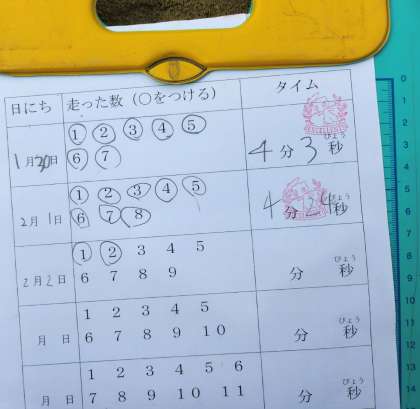 日にち 走った数(○をつける) タイム
1 2 3 4 5
1月30日 6 7 4分3秒
びょう
1 2 3 4 5
2月1日 6 7 8 4分24秒
びょう
1 2 3 4 5
2月2日 6 7 8 9 分 秒
びょう
1 2 3 4 5
月 日 6 7 8 9 10 分 秒
びょう
1 2 3 4 5 6
月 日 7 8 9 10 11 分 秒
びょう
0
1
2
3
4
5
6
7
8
9
10
11
12
13
14